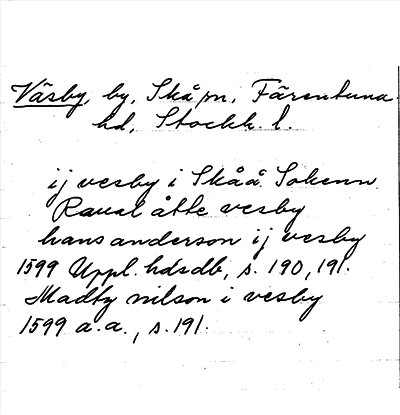 Väsby, by, Skå sn, Färentuna
hd, Stockh. l.
ij vesby i Skåå Sokenn
Raual åtte vesby
hans anderson ij vesby
1599 Uppl. hdsdb, s. 190, 191.
Madtz nilson i vesby
1599 a.a., s. 191.